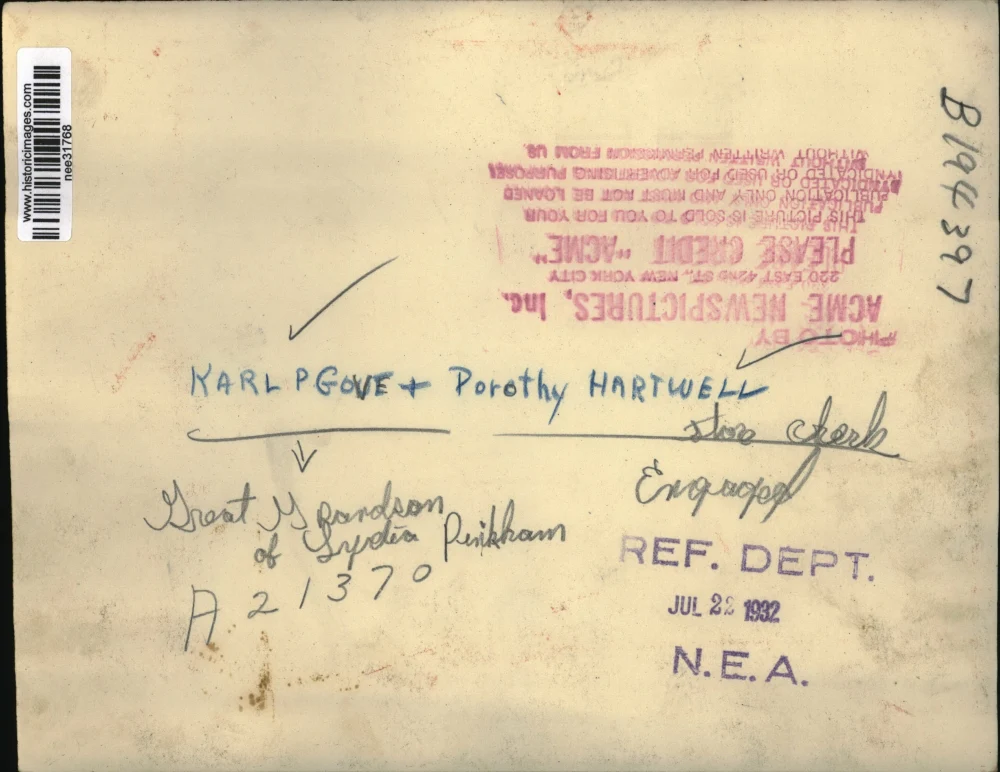 www.historicimages.com
nee31768
B194397
PHOTO BY
ACME NEWSPICTURES, Inc.
220 EAST 42ND ST., NEW YORK CITY
PLEASE CREDIT "ACME"
THIS PICTURE IS SOLD TO YOU FOR YOUR
PUBLICATION ONLY AND MUST NOT BE LOANED
SYNDICATED OR USED FOR ADVERTISING PURPOSES
WITHOUT WRITTEN PERMISSION FROM US.
KARL P GOVE + Dorothy HARTWELL
store clerk
Engaged
Great Grandson
of Lydia Pinkham
A 21370
REF. DEPT.
JUL 22 1932
N.E.A.